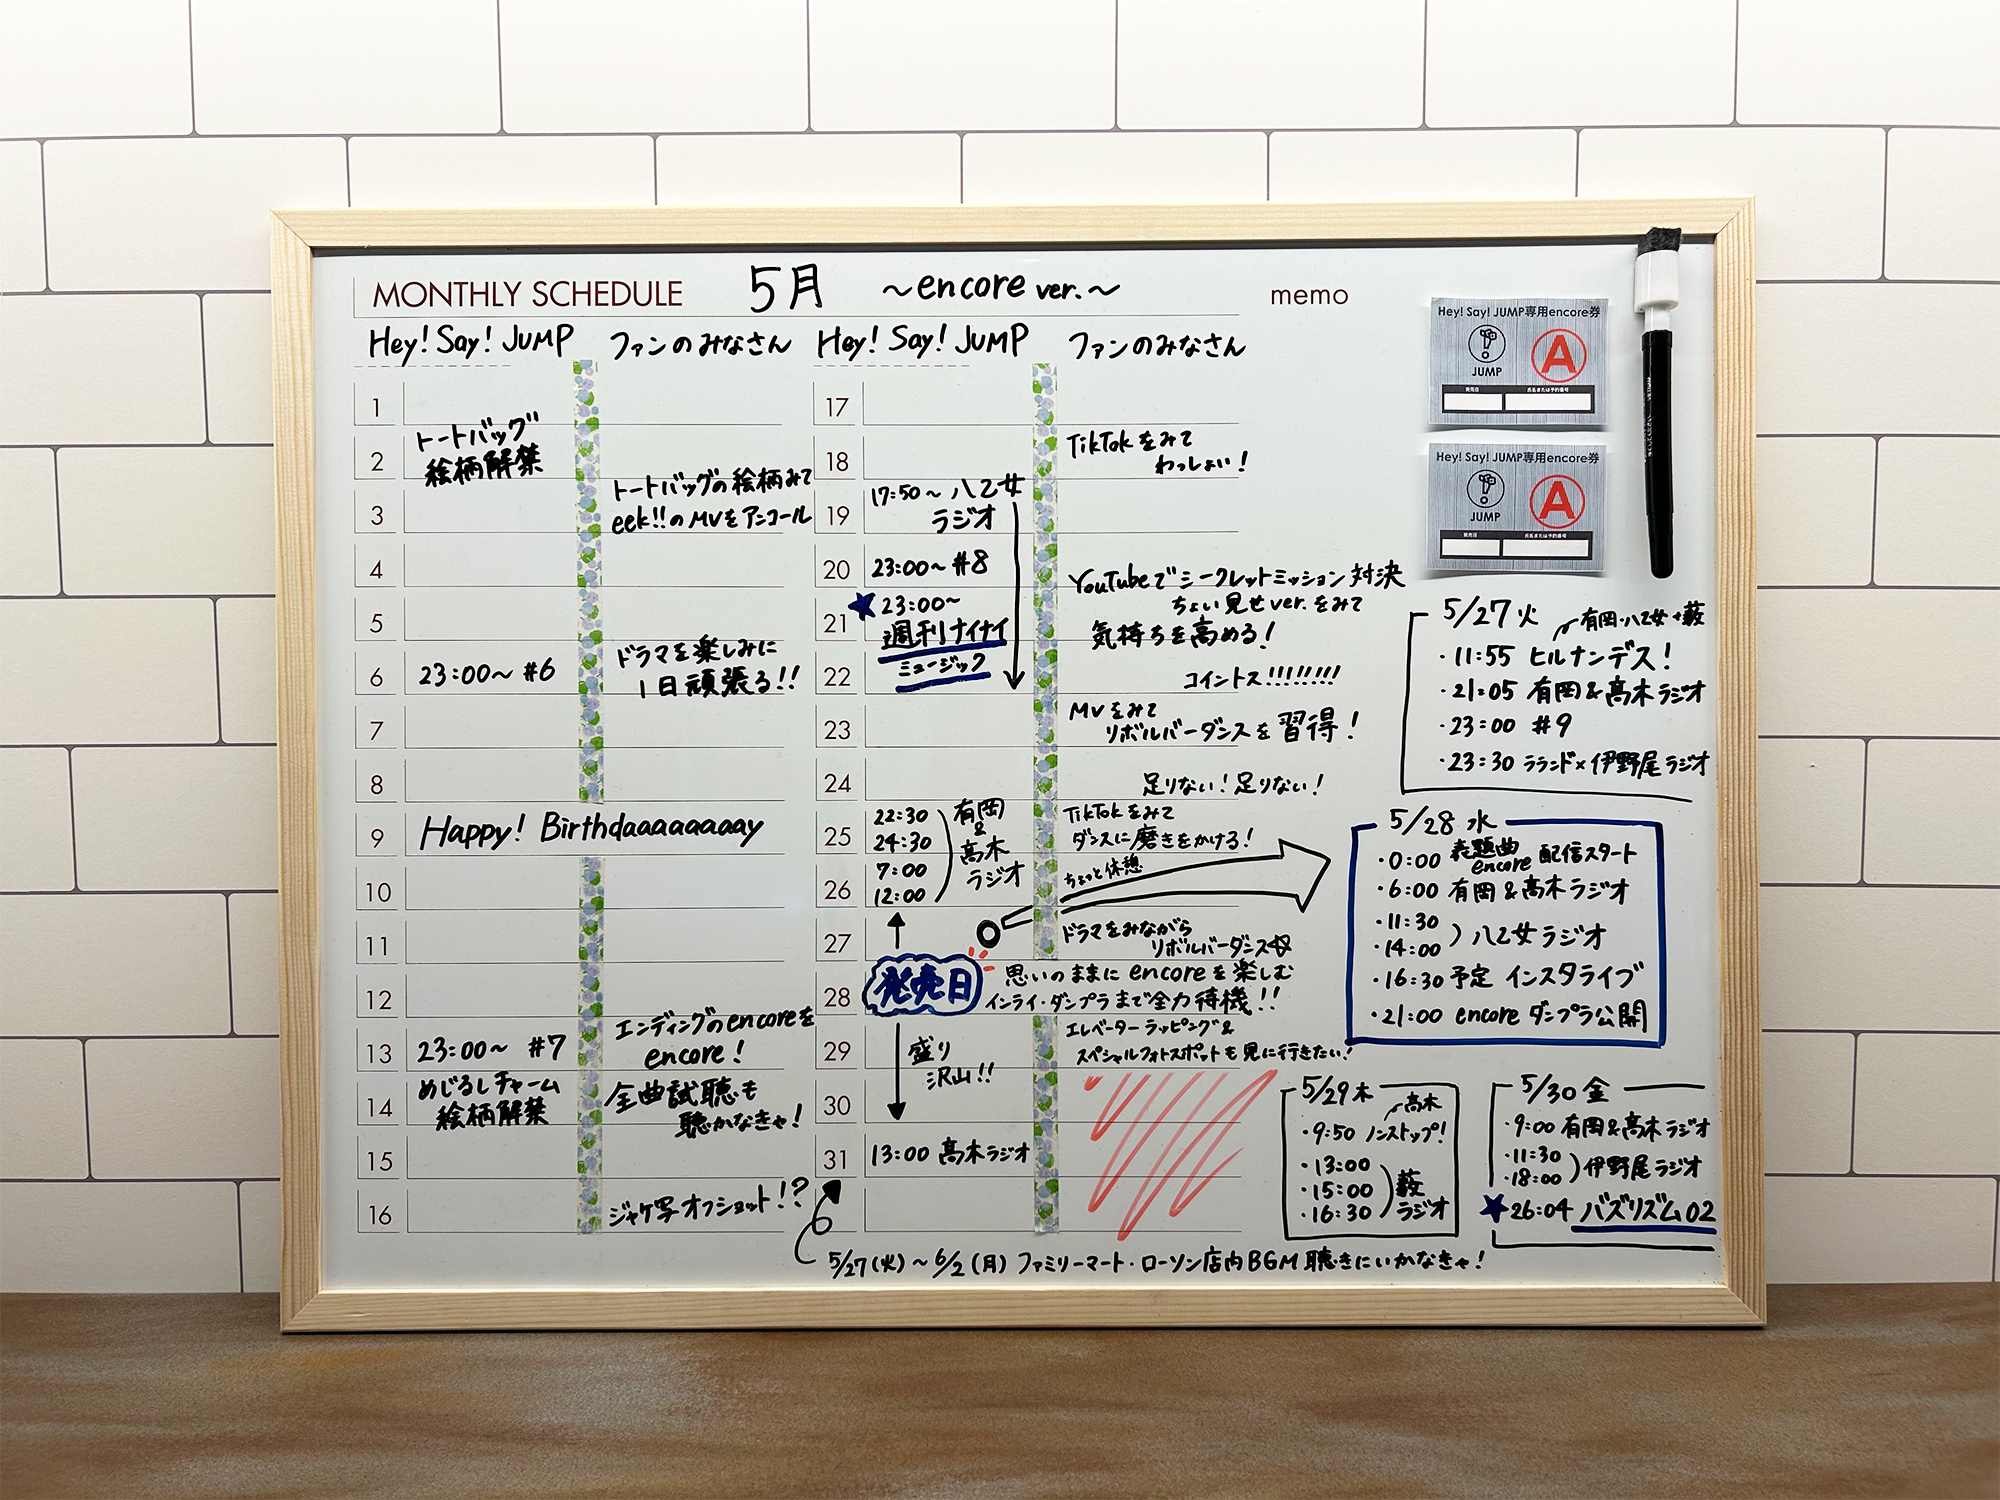 MONTHLY SCHEDULE 5月 ～encore ver.～
memo
Hey! Say! JUMP ファンのみなさん
1
2 トートバッグ
絵柄解禁
3 トートバッグの絵柄みて
eek!!のMVをアンコール
4
5
6 23:00～ #6 ドラマを楽しみに
1日頑張る!!
7
8
9 Happy! Birthdaaaaaaaay
10
11
12
13 23:00～ #7 エンディングのencoreを
encore!
14 めじるしチャーム
絵柄解禁
全曲試聴も
聴かなきゃ!
15
16 ジャケ写オフショット!?
Hey! Say! JUMP ファンのみなさん
17
18 TikTokをみて
わっしょい!
19 17:50～ 八乙女
ラジオ
20 23:00～ #8 YouTubeでシークレットミッション対決
ちょい見せver.をみて
気持ちを高める!
21 ★23:00～
週刊ナイナイ
ミュージック
22 コイントス!!!!!!!!
23 MVをみて
リボルバーダンスを習得!
24 足りない!足りない!
25 22:30
24:30
26 7:00
12:00
有岡
&
髙木
ラジオ
TikTokをみて
ダンスに磨きをかける!
ちょっと休憩
27 ドラマをみながら
リボルバーダンス
28 発売日 思いのままにencoreを楽しむ
インライ・ダンプラまで全力待機!!
29 盛り
沢山!!
エレベーターラッピング&
スペシャルフォトスポットも見に行きたい!
30
31 13:00 髙木ラジオ
5/27(火)～6/2(月) ファミリーマート・ローソン店内BGM聴きにいかなきゃ!
Hey! Say! JUMP専用encore券
JUMP A
発売日 氏名または予約番号
Hey! Say! JUMP専用encore券
JUMP A
発売日 氏名または予約番号
5/27 火
有岡・八乙女・薮
・11:55 ヒルナンデス!
・21:05 有岡&髙木ラジオ
・23:00 #9
・23:30 ラランド×伊野尾ラジオ
5/28 水
・0:00 表題曲encore 配信スタート
・6:00 有岡&髙木ラジオ
・11:30
・14:00 )八乙女ラジオ
・16:30予定 インスタライブ
・21:00 encoreダンプラ公開
5/29 木
髙木
・9:50 ノンストップ!
・13:00
・15:00
・16:30
薮
ラジオ
5/30 金
・9:00 有岡&髙木ラジオ
・11:30
・18:00 )伊野尾ラジオ
★26:04 バズリズム02